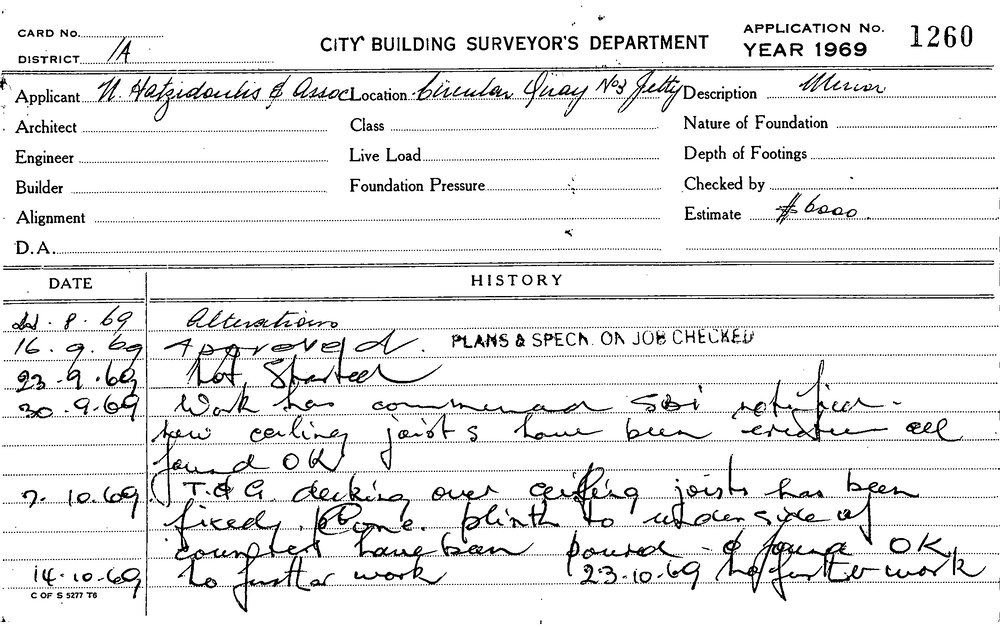 CARD No.
DISTRICT 1A
CITY BUILDING SURVEYOR'S DEPARTMENT
APPLICATION No. 1260
YEAR 1969
Applicant N. Hatzidoulis & Assoc Location Circular Quay No3 Jetty Description Minor
Architect Class Nature of Foundation
Engineer Live Load Depth of Footings
Builder Foundation Pressure Checked by
Alignment Estimate $6000.
D.A.
DATE HISTORY
8.69 Alterations
16.9.69 Approved. PLANS & SPECN. ON JOB CHECKED
23.9.69 Not Started
30.9.69 Work has commenced SBI notified.
new ceiling joists have been erected all
found OK
7.10.69 T.& G. decking over ceiling joists has been
fixed. Conc. plinth to underside of
counters have been poured & found OK
14.10.69 No further work 23.10.69 No further work
C OF S 5277 T6